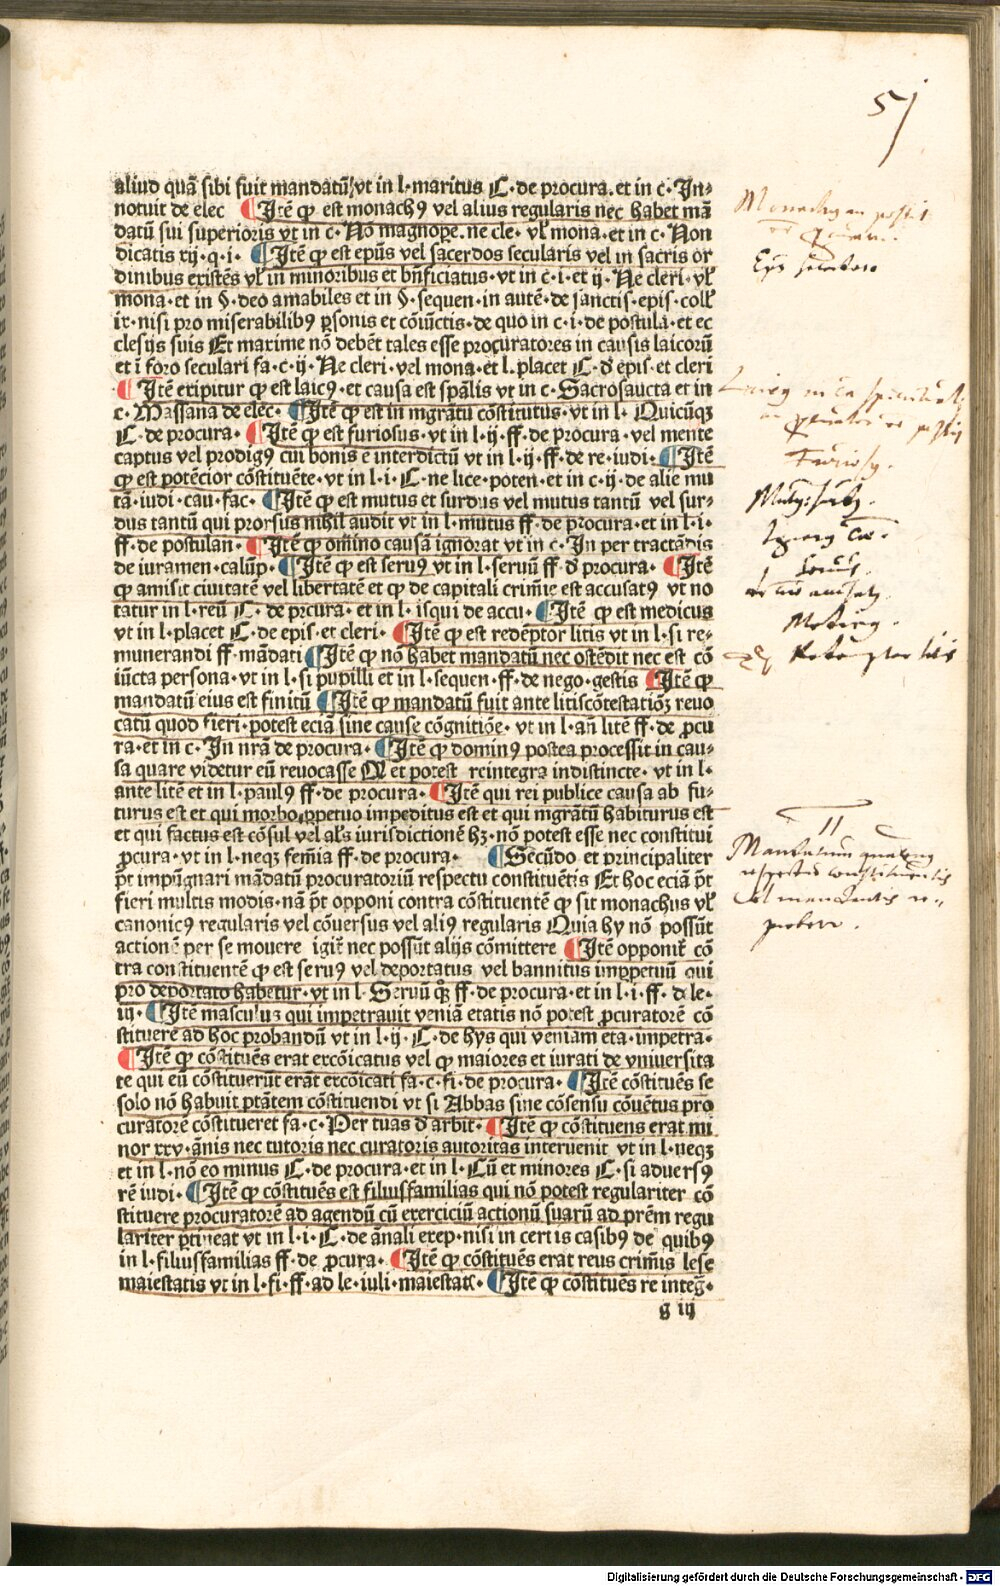 51
aliud quā sibi fuit mandatū vt in l. maritus C. de procura. et in c. In-
notuit de elec ¶ Itē ꝙ est monachꝰ vel alius regularis nec habet mā
datū sui superioris vt in c. Nō magnope. ne cle. vl̄ mona. et in c. Non
dicatis xij. q. i. ¶ Itē ꝙ est ep̄us vel sacerdos secularis vel in sacris or
dinibus existēs vl̄ in minoribus et bn̄ficiatus. vt in c. i. et ij. Ne cleri. vl̄
mona. et in §. deo amabiles et in §. sequen. in autē. de sanctis. epis. coll̄
ix. nisi pro miserabilibꝰ ꝑsonis et cōiūctis. de quo in c. i. de postula. et ec
clesijs suis Et maxime nō debēt tales esse procuratores in causis laicorū
et ī foro seculari fa. c. ij. Ne cleri. vel mona. et l. placet C. d̄ epis. et cleri
¶ Itē excipitur ꝙ est laicꝰ. et causa est sp̄alis vt in c. Sacrosaucta et in
c. Massana de elec. ¶ Itē ꝙ est in mgratu cōstitutus. vt in l. Quicūqꝫ
C. de procura. ¶ Itē ꝙ est furiosus. vt in l. ij. ff. de procura. vel mente
captus vel prodigꝰ cui bonis ē interdictū vt in l. ij. ff. de re. iudi. ¶ Itē
ꝙ est potēcior cōstituēte. vt in l. i. C. ne lice. poten. et in c. ij. de alie mu
ta. iudi. cau. fac. ¶ Itē ꝙ est mutus et surdus vel mutus tantū vel sur-
dus tantū qui prorsus nihil audit vt in l. mutus ff. de procura. et in l. i.
ff. de postulan. ¶ Itē ꝙ om̄ino causā ignorat vt in c. In per tractādis
de iuramen. calūp. ¶ Itē ꝙ est seruꝰ vt in l. seruū ff. d̄ procura. ¶ Itē
ꝙ amisit ciuitatē vel libertatē et ꝙ de capitali crimīe est accusatꝰ vt no
tatur in l. reū C. de ꝓcura. et in l. is qui de accu. ¶ Itē ꝙ est medicus
vt in l. placet C. de epis. et cleri. ¶ Itē ꝙ est redēptor litis vt in l. si re-
munerandi ff. mādati ¶ Itē ꝙ nō habet mandatū nec ostēdit nec est cō
iūcta persona. vt in l. si pupilli et in l. sequen. ff. de nego. gestis ¶ Itē ꝙ
mandatū eius est finitū ¶ Itē ꝙ mandatū fuit ante litiscōtestatiōꝫ reuo
catū quod fieri. potest eciā sine cause cōgnitiōe. vt in l. an̄ litē ff. de ꝓcu
ra. et in c. In nr̄a de procura. ¶ Itē ꝙ dominꝰ postea processit in cau-
sa quare videtur eū reuocasse et potest reintegra indistincte. vt in l.
ante litē et in l. paulꝰ ff. de procura. ¶ Itē qui rei publice causa ab fu-
turus est et qui morbo ꝑpetuo impeditus est et qui mgrātū habiturus est
et qui factus est cōsul vel al̄s iurisdictionē hꝫ. nō potest esse nec constitui
ꝓcura. vt in l. neqꝫ fem̄ia ff. de procura. ¶ Secūdo et principaliter
p̄t impūgnari mādatū procuratoriū respectu constituētis Et hoc eciā p̄t
fieri multis modis. nā p̄t opponi contra cōstituentē ꝙ sit monachus vl̄
canonicꝰ regularis vel cōuersus vel aliꝰ regularis Quia hy nō possūt
actionē per se mouere igit̄ nec possūt alijs cōmittere ¶ Itē opponit̄ cō
tra constituentē ꝙ est seruꝰ vel deportatus vel bannitus imꝑpetuū qui
pro deportato habetur. vt in l. Seruū qꝫ ff. de procura. et in l. i. ff. de le.
iij. ¶ Itē masculus qui impetrauit veniā etatis nō potest ꝓcuratorē cō
stituere ad hoc probandū vt in l. ij. C. de hys qui veniam eta. impetra.
¶ Itē ꝙ cōstituēs erat excōicatus vel ꝙ maiores et iurati de vniuersita
te qui eū cōstituerūt erāt excōicati fa. c. fi. de procura. ¶ Itē cōstituēs se
solo nō habuit ptātem cōstituendi vt si Abbas sine cōsensu cōuētus pro
curatorē cōstitueret fa. c. Per tuas d̄ arbit. ¶ Itē ꝙ cōstituens erat mi
nor xxv. ānis nec tutoris nec curatoris autoritas interuenit vt in l. neqꝫ
et in l. nō eo minus C. de procura. et in l. Cū et minores C. si aduersꝰ
rē iudi. ¶ Itē ꝙ cōstituēs est filiusfamilias qui nō potest regulariter cō
stituere procuratorē ad agendū cū exerciciū actionū suarū ad prēm regu
lariter ꝑtineat vt in l. i. C. de ānali excep. nisi in certis casibꝰ de quibꝰ
in l. filiusfamilias ff. de ꝓcura. ¶ Itē ꝙ cōstituēs erat reus crimīs lese
maiestatis vt in l. fi. ff. ad le. iuli. maiestat. ¶ Itē ꝙ cōstituēs re inteḡ.
g iij
Digitalisierung gefördert durch die Deutsche Forschungsgemeinschaft - DFG